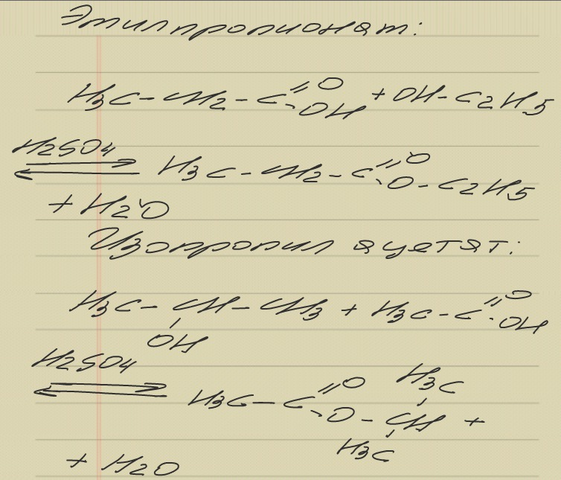 Этилпропионат:
H3C-CH2-C(=O)OH + OH-C2H5
H2SO4 ⇌ H3C-CH2-C(=O)O-C2H5
+ H2O
Изопропил ацетат:
H3C-CH(OH)-CH3 + H3C-C(=O)OH
H2SO4 ⇌ H3C-C(=O)O-CH(H3C)(H3C) +
+ H2O